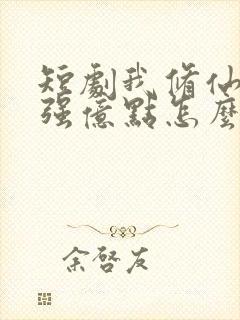 短劇我修仙
强億點怎麼
余啓友